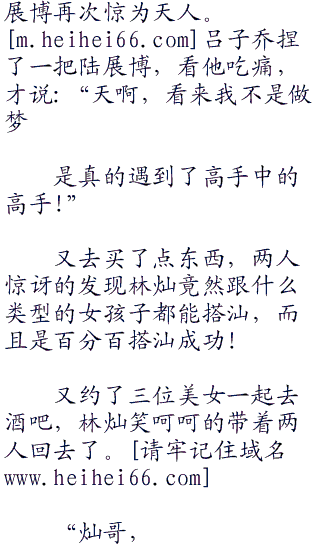 展博再次惊为天人。
[m.heihei66.com]吕子乔捏
了一把陆展博，看他吃痛，
才说：“天啊，看来我不是做
梦
是真的遇到了高手中的
高手！”
又去买了点东西，两人
惊讶的发现林灿竟然跟什么
类型的女孩子都能搭讪，而
且是百分百搭讪成功！
又约了三位美女一起去
酒吧，林灿笑呵呵的带着两
人回去了。[请牢记住域名
www.heihei66.com]
“灿哥，